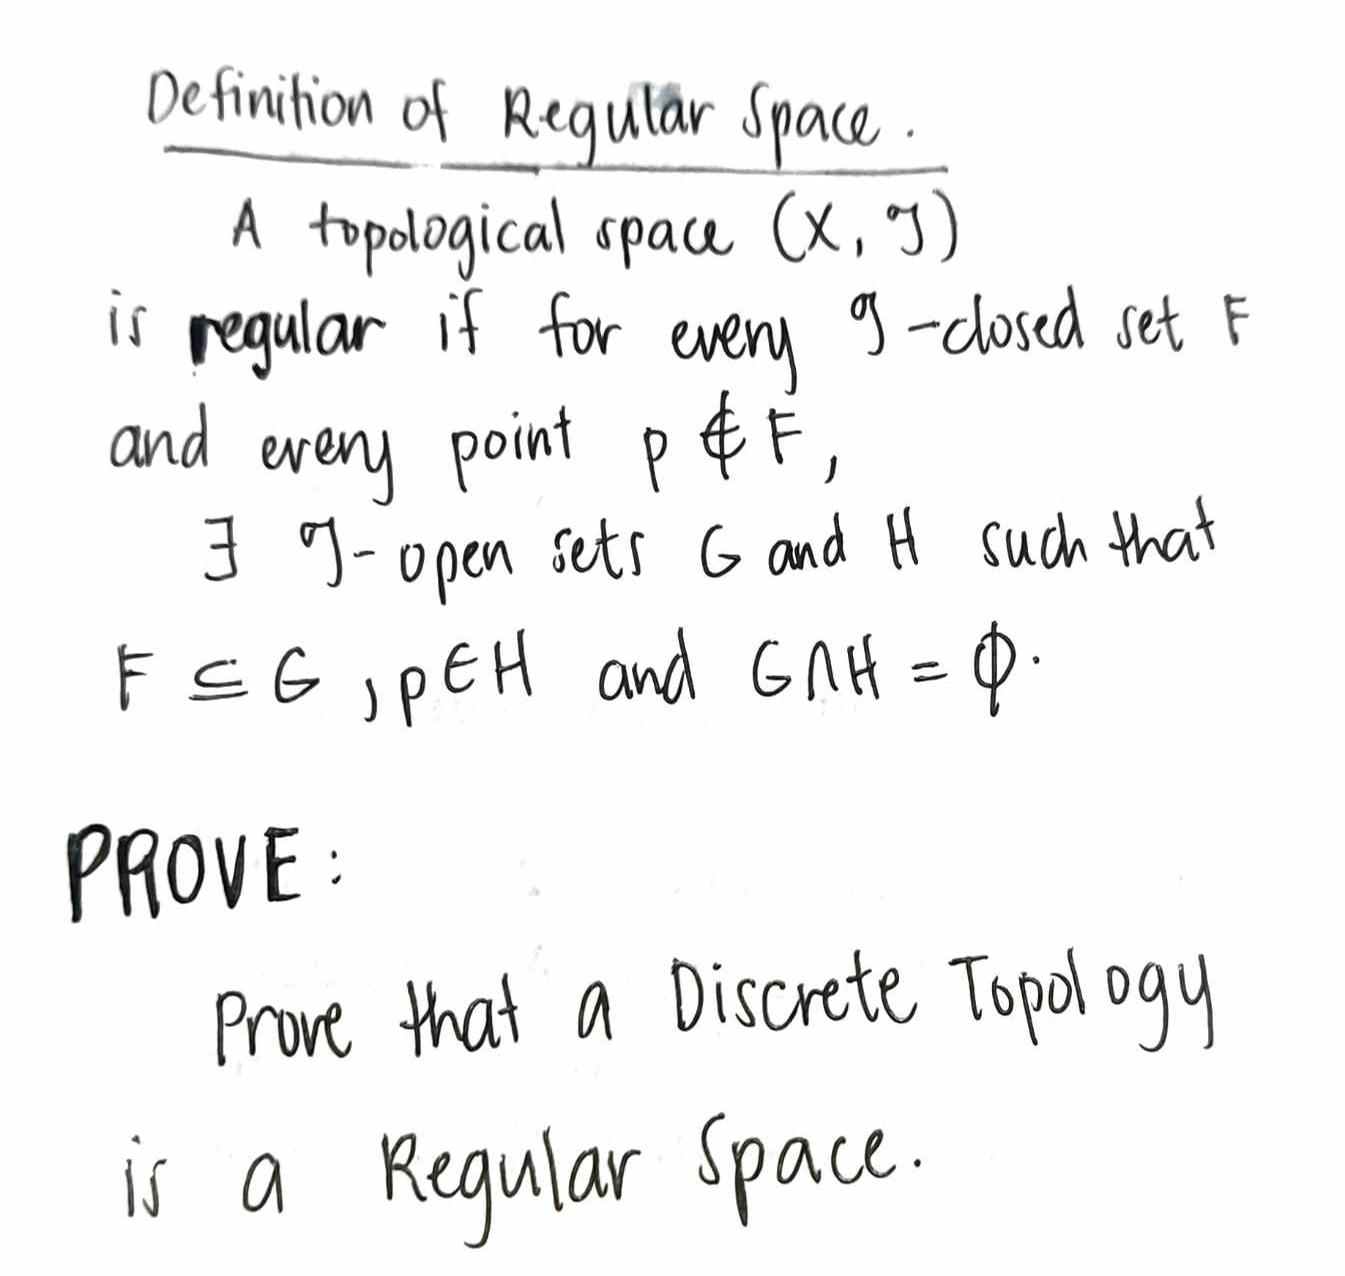 Definition of Regular Space.
A topological space (X, 𝒯)
is regular if for every 𝒯-closed set F
and every point p ∉ F,
∃ 𝒯-open sets G and H such that
F ⊆ G , p ∈ H and G ∩ H = ϕ.
PROVE:
Prove that a Discrete Topology
is a Regular Space.